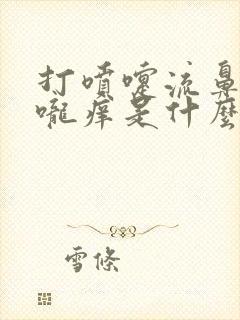 打噴嚏流鼻
嚨癢是什麼
雪條